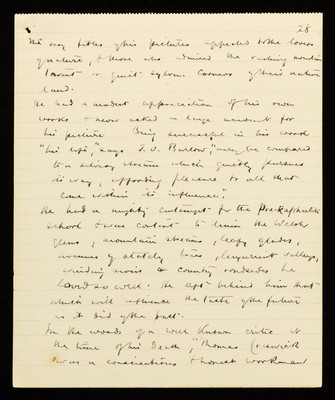 28
The very titles of his pictures appealed to the lovers
of nature, & those who admired the rushing mountain
torrent or quiet sylvan corners of their native
land.
He had a modest appreciation of his own
works & never asked a large amount for
his picture. Being successful in his work
"his life," says T. O. Barlow, "may be compared
to a silvery stream which quietly pursues
its way, affording pleasure to all that
come within its influence."
He had a mighty contempt for the Pre-Raphaelite
School & was content to limn the Welsh
glens, mountain streams, leafy glades,
avenues of stately trees, luxuriant valleys,
winding rivers & country roadsides he
loved so well. He left behind him that
which will influence the taste of the future
as it did of the past.
In the words of a well known critic at
the time of his death, "Thomas Creswick
was a conscientious & honest workman